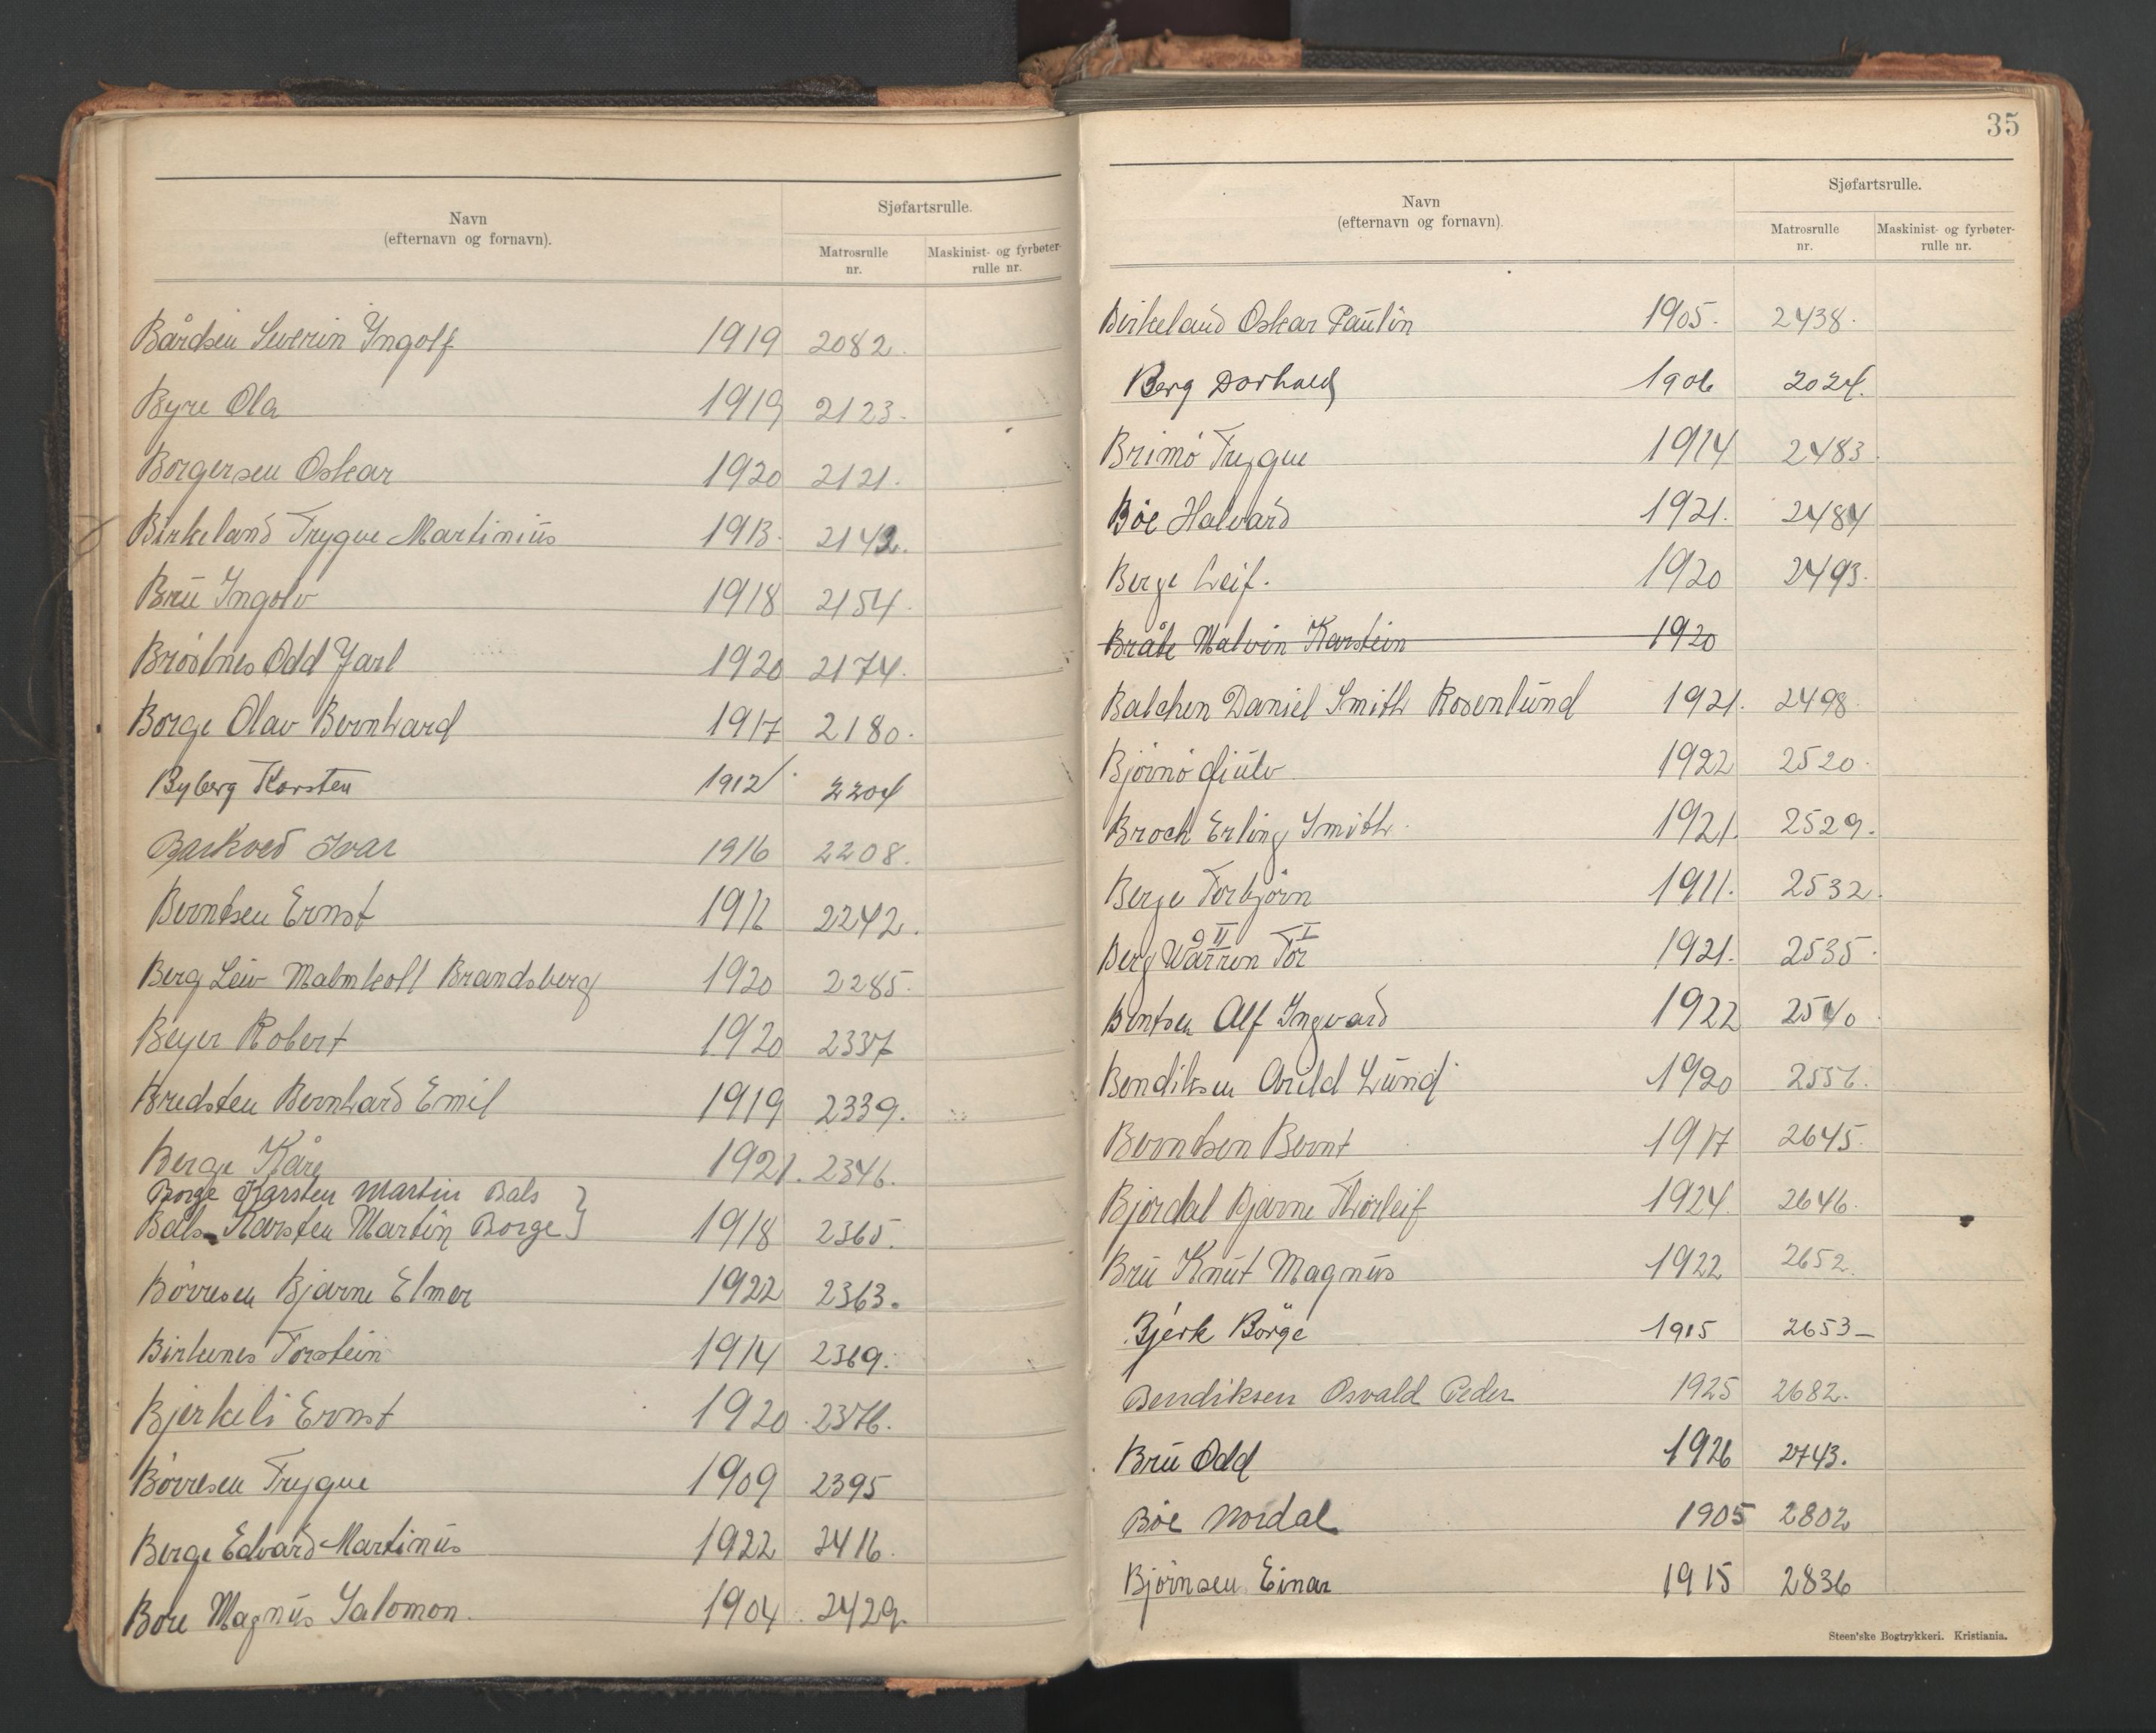 Navn
(efternavn og fornavn).
Sjøfartsrulle.
Matrosrulle
nr.
Maskinist- og fyrbøter-
rulle nr.
Bårdsen Severin Ingolf 1919 2082.
Byre Ola 1919 2123.
Borgersen Oskar 1920 2121.
Birkeland Trygve Martinius 1913. 2142.
Brü Ingolv 1918 2154.
Brøstnes Odd Jarl 1920 2174.
Borge Olav Bernhard 1917 2180.
Byberg Torsten 1912 2204
Barkved Ivar 1916 2208.
Berntsen Ernst 1916 2242.
Berg Leiv Malmkoll Brandsberg 1920 2285.
Beyer Robert 1920 2337
Bredsten Bernhard Emil 1919 2339.
Berge Kåre 1921. 2346.
Borge Karsten Martin Bals
Bals Karsten Martin Borge } 1918 2365.
Børresen Bjarne Elmer 1922 2363.
Birkenes Torstein 1914 2369.
Bjerkeli Ernst 1920. 2376.
Børresen Trygve 1909 2395
Berge Edvard Martinüs 1922 2416.
Bore Magnüs Salomon. 1904. 2429.
35
Navn
(efternavn og fornavn).
Sjøfartsrulle.
Matrosrulle
nr.
Maskinist- og fyrbøter-
rulle nr.
Birkeland Oskar Paülin 1905. 2438.
Berg Dorhald 1906 2024.
Brimø Trygve 1914 2483.
Bøe Halvard 1921. 2484
Berge Leif. 1920 2493.
Bråte Malvin Karstein 1920
Balchen Daniel Smith Rosenlünd 1921. 2498.
Bjørnø 1922 2520.
Broch Erling Smith. 1921. 2529.
Berge Torbjørn 1911. 2532.
II I
Berg Warren Tor 1921. 2535.
Bentsen Alf Ingvard 1922 2540.
Bendiksen Arild Lünd 1920 2556.
Berntsen Bernt 1917 2645.
Bjordal Bjarne Thorleif 1924. 2646.
Brü Knüt Magnüs 1922 2652.
Bjerk Börge 1915 2653–
Bendiksen Osvald Peder 1925 2682.
Brü Odd 1926 2743.
Bøe Nordal 1905 2802
Bjørnsen Einar 1915 2836
Steen'ske Bogtrykkeri. Kristiania.